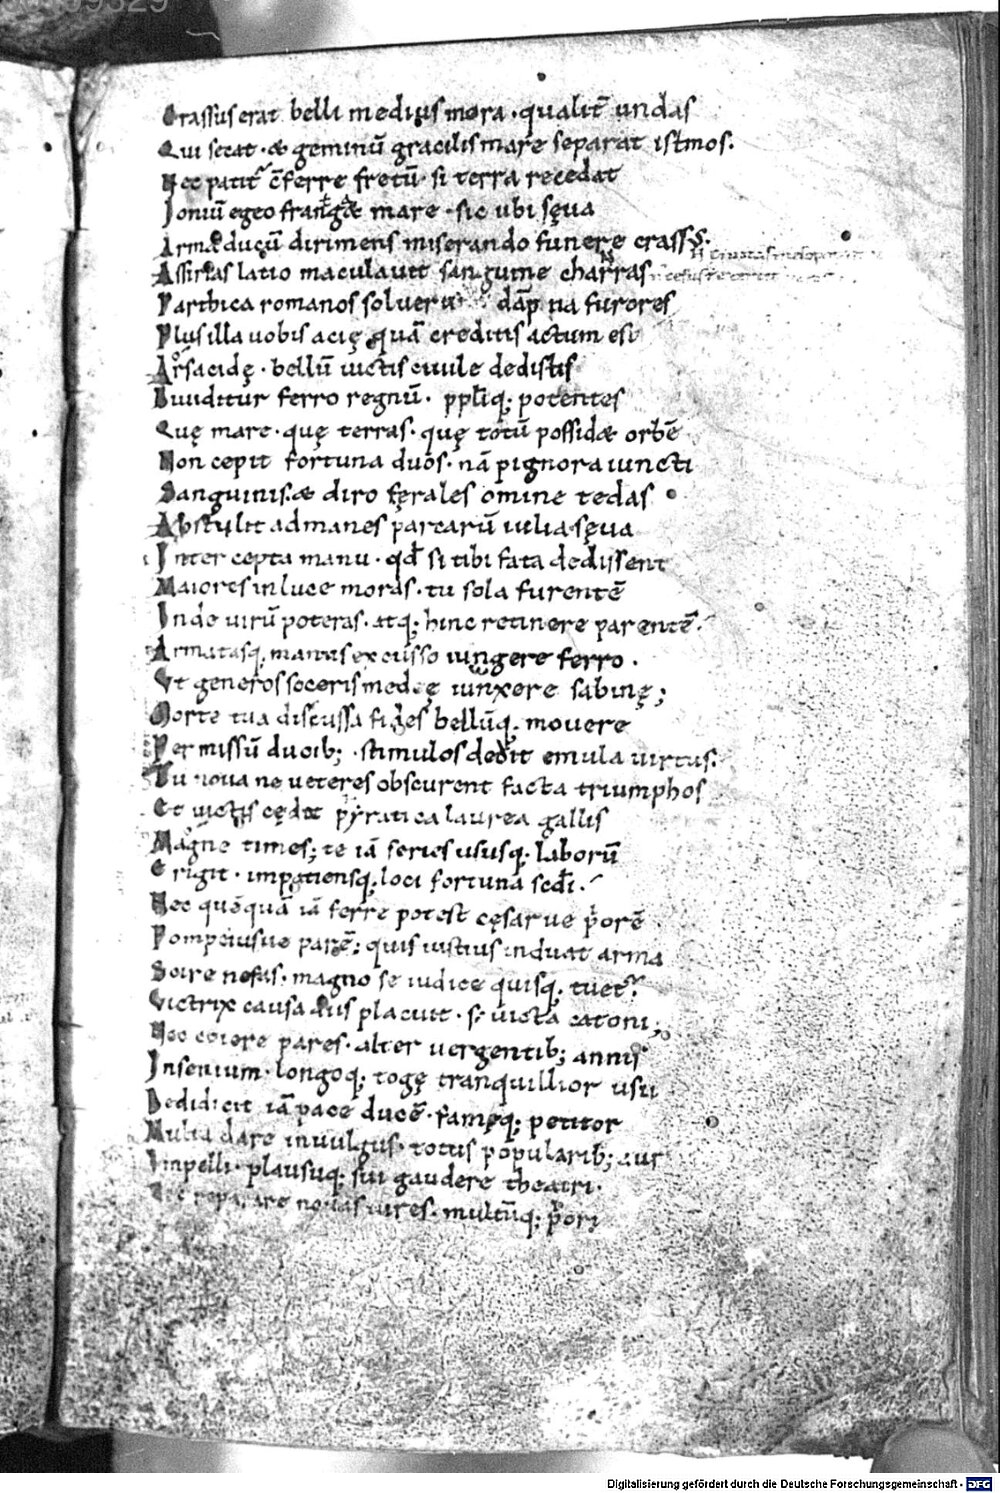 Crassus erat belli medius mora · qualit̄ undas
Qui secat · & geminū gracilis mare separat istmos.
Nec patit̄ c̄ferre fretū · si terra recedat
Ioniū egeo frang& mare · sic ubi sęua
Arma ducū dirimens miserando funere crassus.
Assirias latio maculauit sanguine charras
Parthica romanos soluer̄ dāpna furores
Plus illa uobis acię quā creditis actum est
Arsacidę · bellū uictis ciuile dedistis
Diuiditur ferro regnū · pplīq; potentes
Quę mare · quę terras · quę totū possid& orbē
Non cepit fortuna duos · nā pignora iuncti
Sanguinis · & diro ferales omine tedas
Abstulit ad manes parcarū iulia sęua
Intercepta manu · qd̄ si tibi fata dedissent
Maiores in luce moras · tu sola furentē
Inde uirū poteras · atq; hinc retinere parentē ·
Armatasq; manus excusso iungere ferro ·
Vt generos soceris medię iunxere sabinę;
Morte tua discussa fides bellūq; mouere
Permissū ducib; · stimulos dedit emula uirtus.
Tu noua ne ueteres obscurent facta triumphos
Et uictis cędat pyratica laurea gallis
Magne times; te iā series ususq; laborū
Erigit · impatiensq; loci fortuna scd̄i ·
Nec quēquā iā ferre potest cęsar ue p̄orē
Pompeiusue parē; quis iustius induat arma
Scire nefas · magno se iudice quisq; tuet̄ ·
Victrix causa diis placuit · s; uicta catoni;
Nec coiere pares · alter uergentib; annis
In senium · longoq; togę tranquillior usu
Dedidicit iā pace ducē · famęq; petitor
Multa dare in uulgus · totus popularib; aur
Impelli · plausuq; sui gaudere theatri ·
Nec reparare nouas uires · multūq; p̄ori
Digitalisierung gefördert durch die Deutsche Forschungsgemeinschaft - DFG